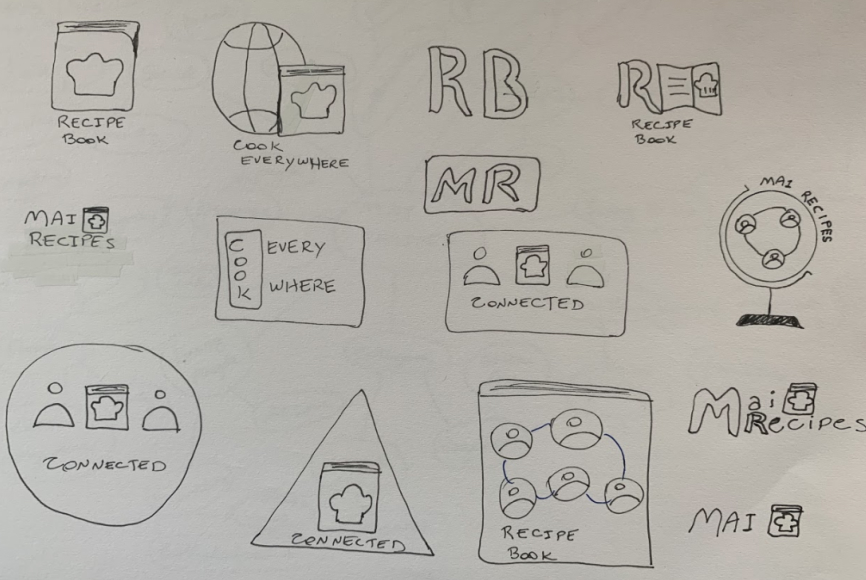 RECIPE
BOOK
COOK
EVERYWHERE
RB
R
RECIPE
BOOK
MAI
RECIPES
MR
COOK
EVERY
WHERE
CONNECTED
MAI RECIPES
CONNECTED
CONNECTED
RECIPE
BOOK
Mai
Recipes
MAI